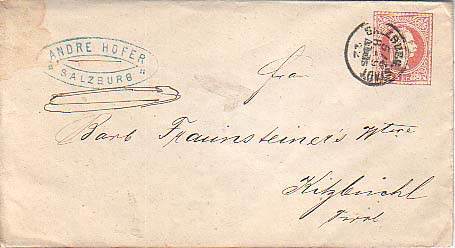 ANDRE HOFER
SALZBURG
Frau
Barb Traunsteiner's Wtwe
Kitzbüchl
Tirol